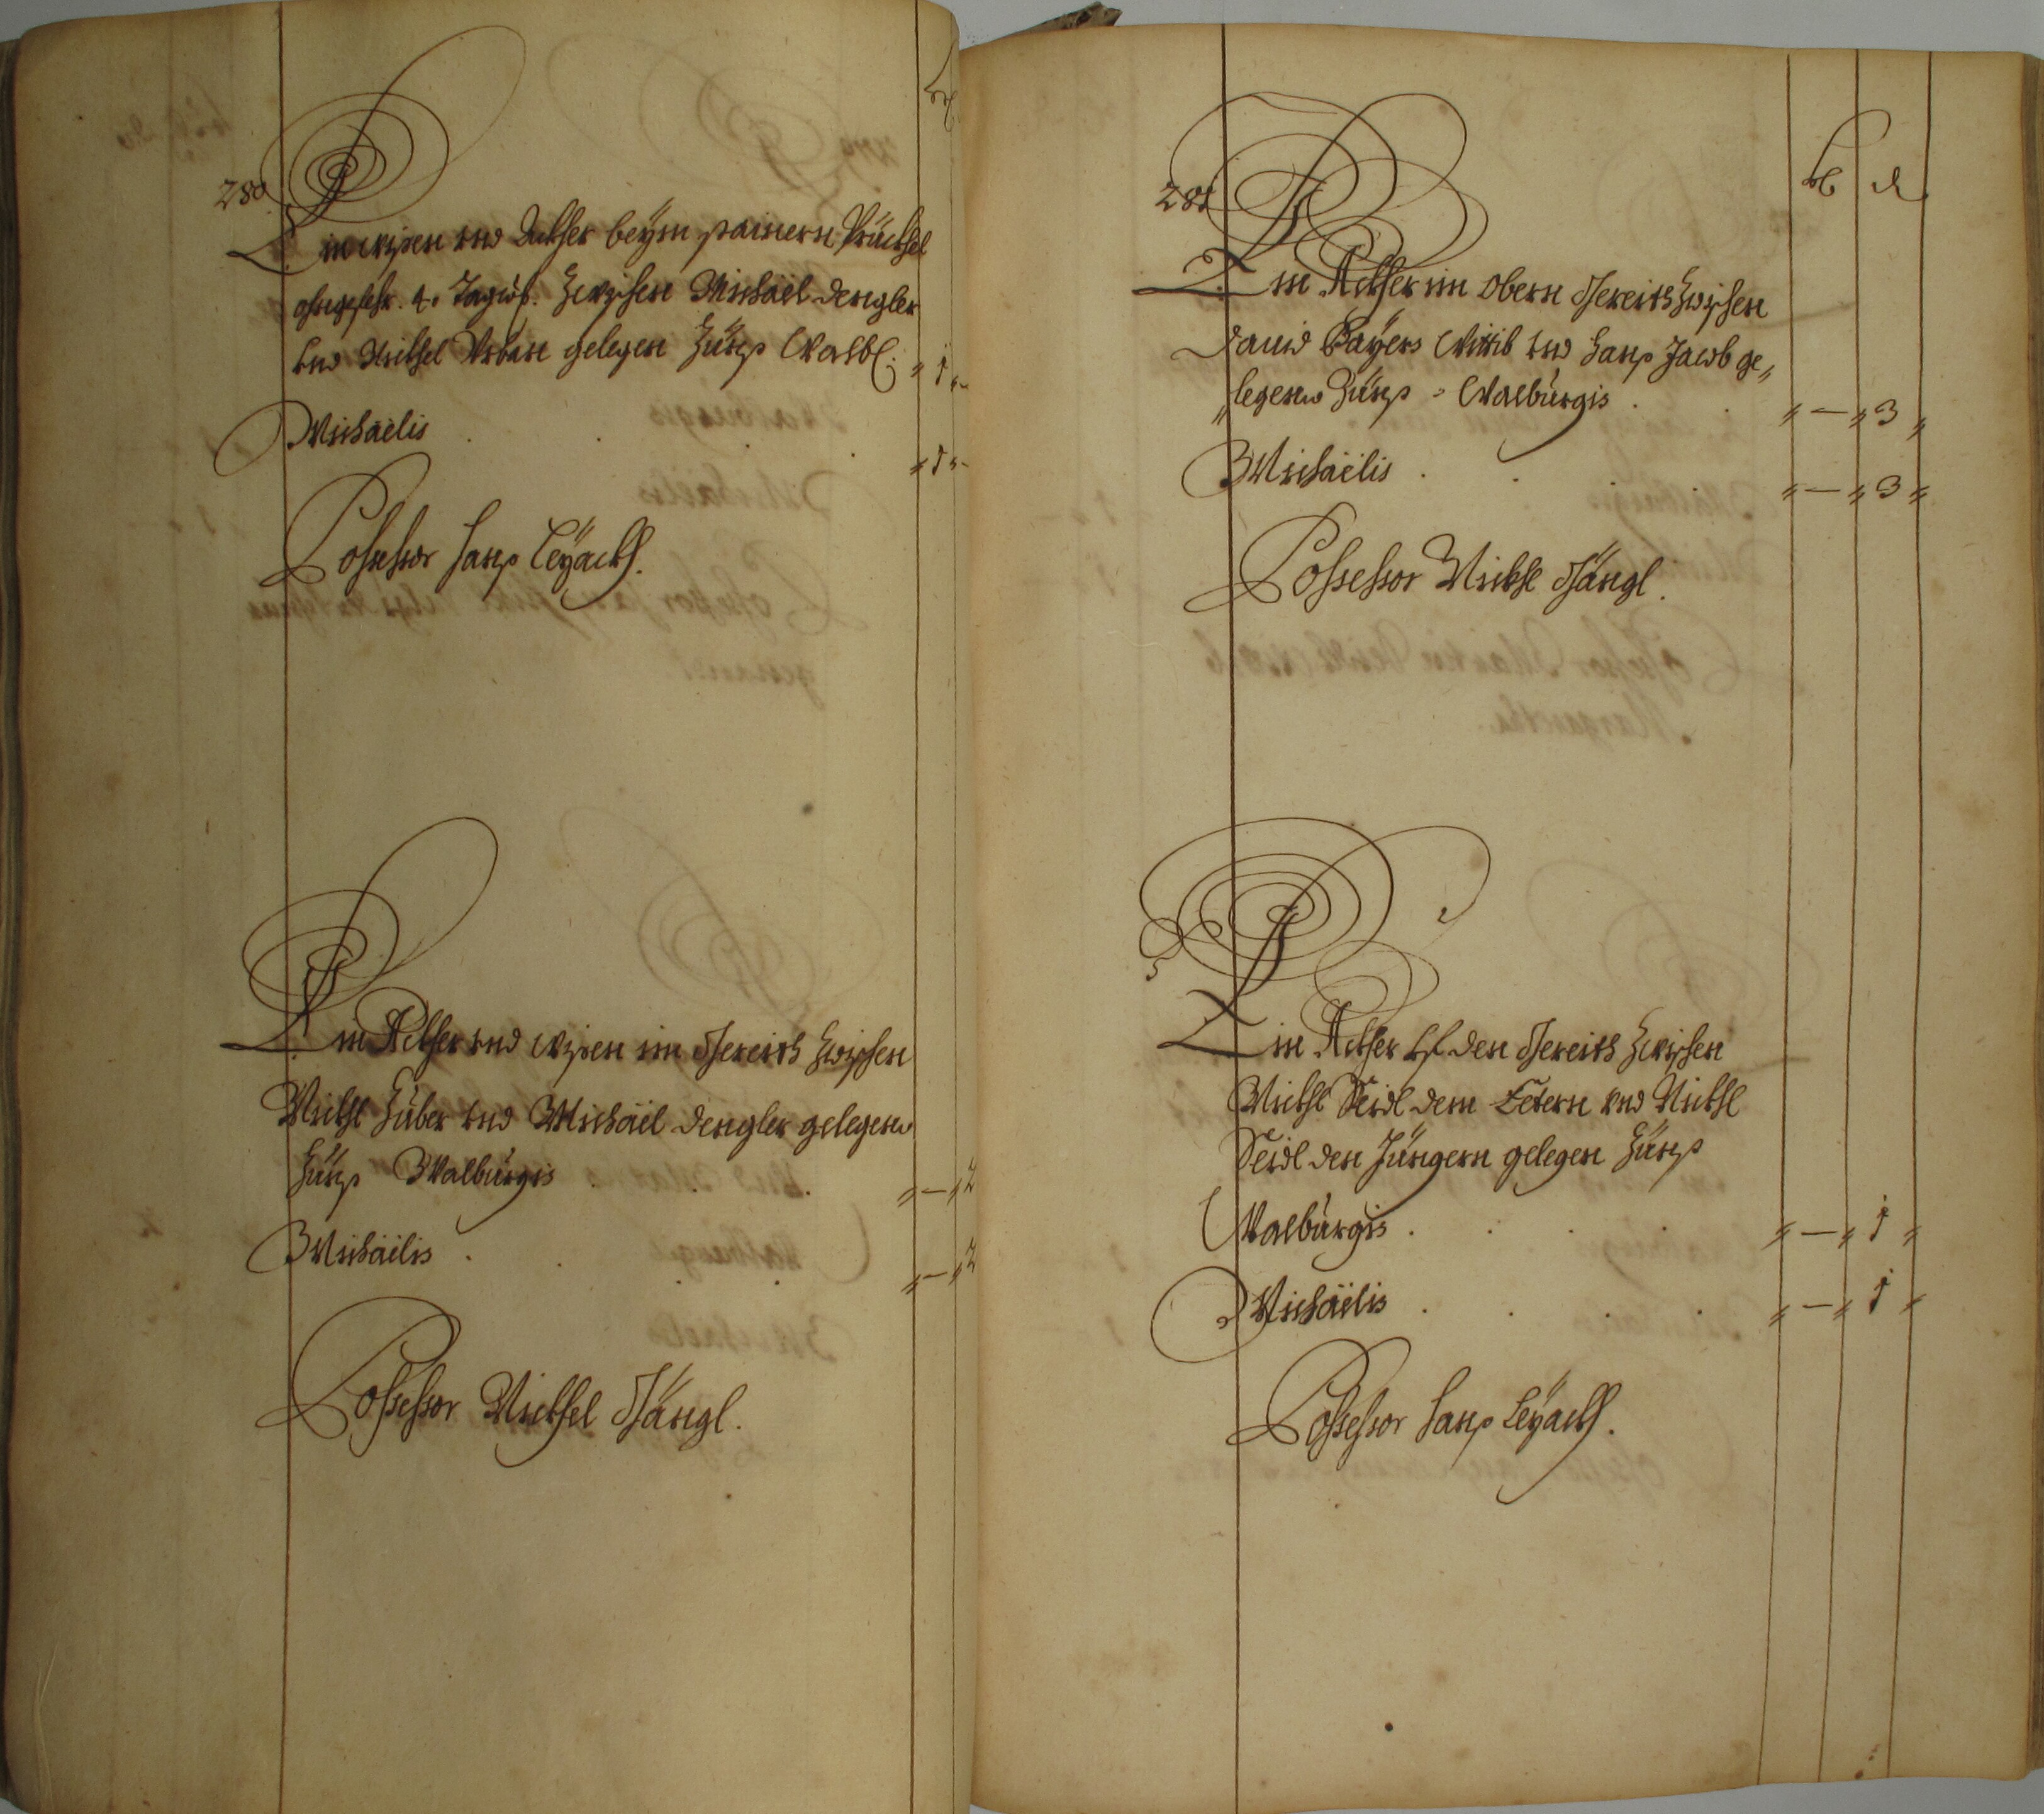 280
Ein wisen vnd Ackher beÿm painern Prückhel
ohngefehr. 4. Tagw: Zwischen Michäel Dengler
vnd Michel Urban gelegen Zünß Walb: " 1 "
Michäelis . . . " 1 "
Possessor Hanß
Ein Ackher vnd wisen im Gereith Zwischen
Michl Hüber vnd Michäel Dengler gelegen
Zünß Walbürgis . . . " — " 2
Michäelis . . . . " — " 2
Possessor Michel
281
ß d
Ein Ackher im Obern Gereith Zwischen
Dauid Paÿers Wittib vnd Hanß Jacob ge„
„legen Zünß Walbürgis . . " — " 3 "
Michäelis . . . . " — " 3 "
Possessor Michl
Ein Ackher vf den Gereith Zwischen
Michl Seidl dem Eltern vnd Michl
Seidl den Jüngern gelegen Zünß
Walbürgis . . . . " — " 1 "
Michäelis . . . . " — " 1 "
Possessor Hanß